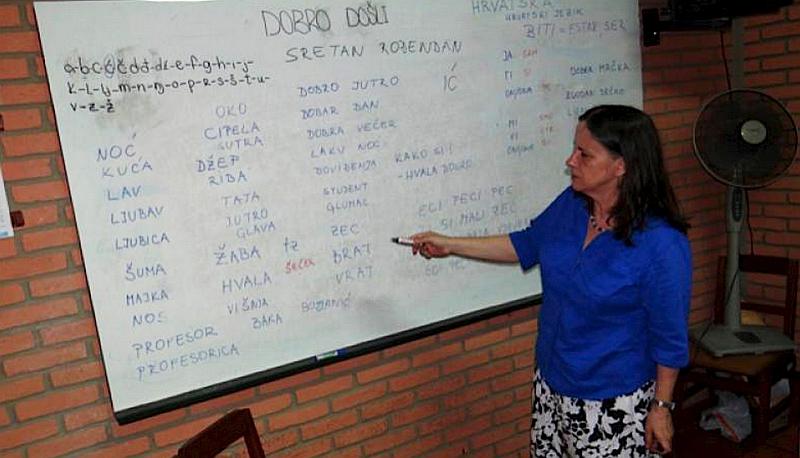 DOBRO DOŠLI
SRETAN ROĐENDAN
HRVATSKA
HRVATSKI JEZIK
BITI = ESTAR SER
a-b-c-č-ć-d-đ-dž-e-f-g-h-i-j-
k-l-lj-m-n-nj-o-p-r-s-š-t-u-
v-z-ž
NOĆ
KUĆA
LAV
LJUBAV
LJUBICA
ŠUMA
MAJKA
NOS
PROFESOR
PROFESORICA
OKO
CIPELA
SUTRA
DŽEP
RIBA
TATA
JUTRO
GLAVA
ŽABA
HVALA
VIŠNJA
BAKA
tz
DOBRO JUTRO
DOBAR DAN
DOBRA VEČER
LAKU NOĆ
DOVIĐENJA
STUDENT
GLUMAC
ZEC
BRAT
VRAT
BOŽANIĆ
IĆ
KAKO SI?
- HVALA DOBRO
ECI PECI PEC
SI MALI ZEC
JA SAM
TI SI
MI SMO
VI STE
DOBRA MAČKA